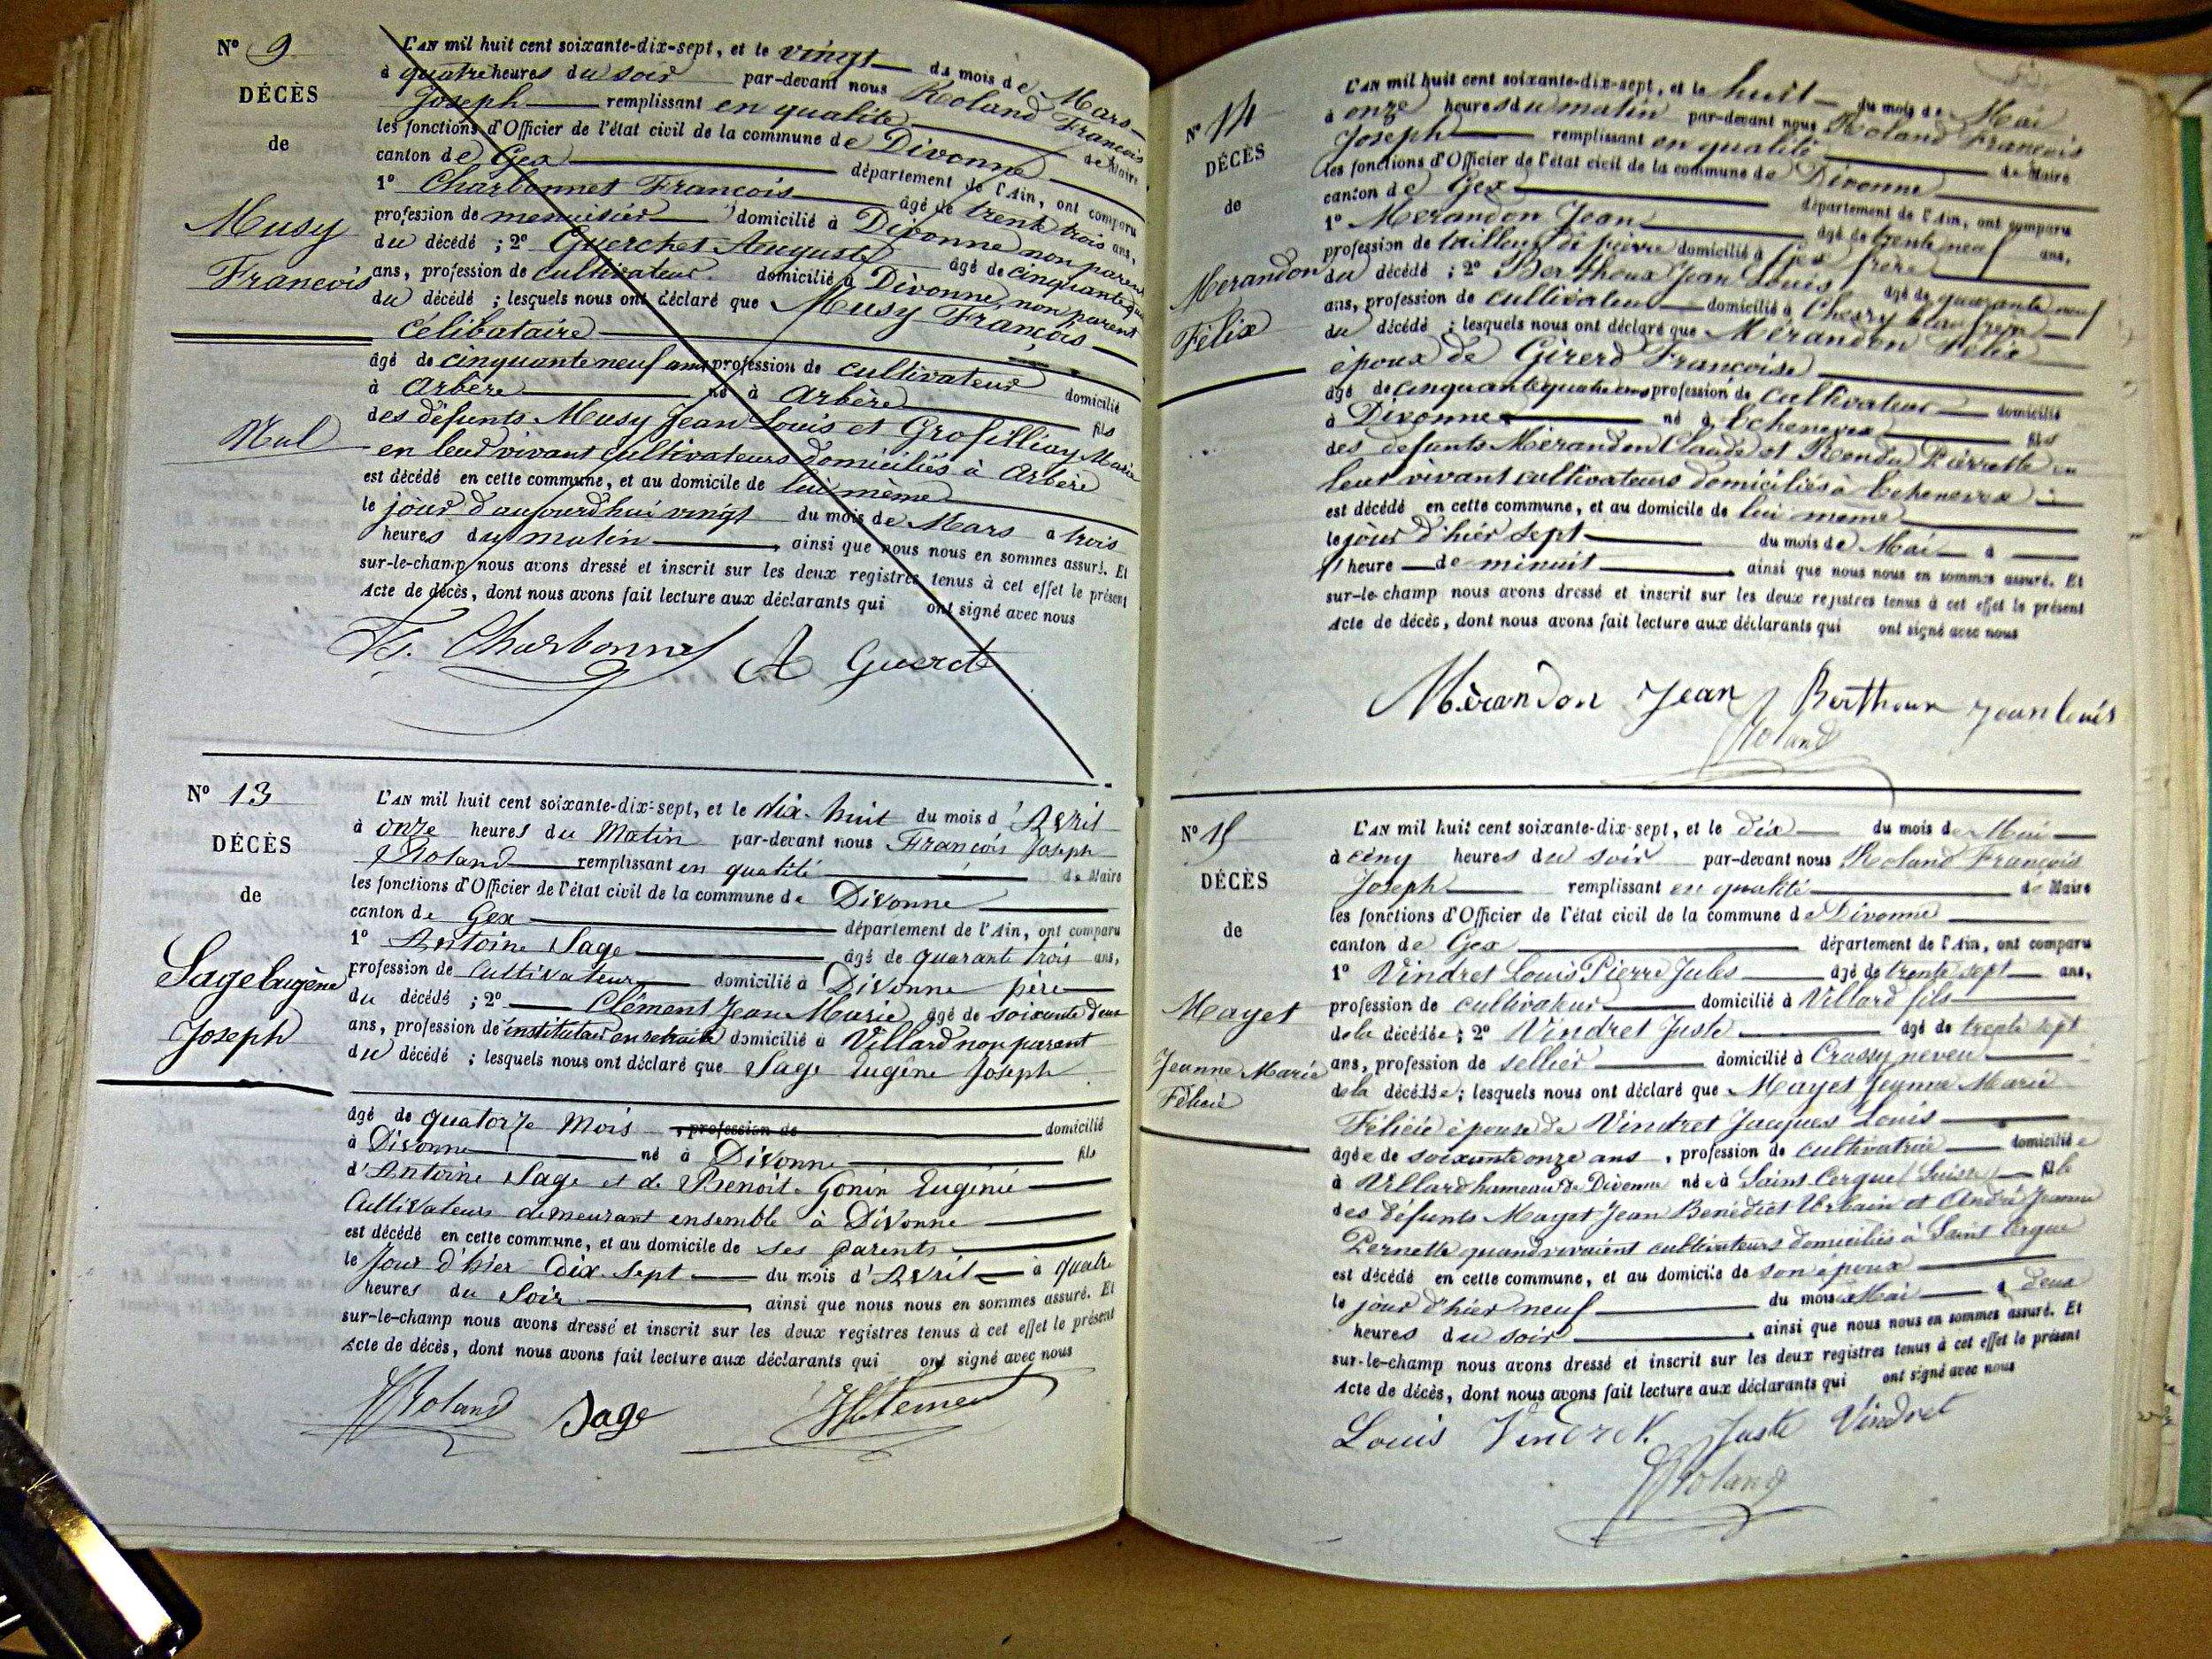 N° 9
DÉCÈS
de
Musy
François
Nul
L'AN mil huit cent soixante-dix-sept, et le vingt du mois de Mars
à quatre heures du soir par-devant nous Roland François
Joseph remplissant en qualité de Maire
les fonctions d'Officier de l'état civil de la commune de Divonne
canton de Gex département de l'Ain, ont comparu
1° Charbonnet François âgé de trente trois ans,
profession de menuisier domicilié à Divonne non parent
du décédé ; 2° Guerchet Auguste âgé de cinquante
ans, profession de cultivateur domicilié à Divonne, non parent
du décédé ; lesquels nous ont déclaré que Musy François
célibataire
âgé de cinquante neuf ans profession de cultivateur domicilié
à Arbère né à Arbère fils
des défunts Musy Jean Louis et Grosfilliay Marie
en leur vivant cultivateurs domiciliés à Arbère
est décédé en cette commune, et au domicile de lui même
le jour d'aujourd'hui vingt du mois de Mars a trois
heures du matin , ainsi que nous nous en sommes assuré. Et
sur-le-champ nous avons dressé et inscrit sur les deux registres tenus à cet effet le présent
Acte de décès, dont nous avons fait lecture aux déclarants qui ont signé avec nous
Fs. Charbonnet A Guercht
N° 13
DÉCÈS
de
Sage Eugène
Joseph
L'AN mil huit cent soixante-dix-sept, et le dix-huit du mois d'Avril
à onze heures du Matin par-devant nous François Joseph
Roland remplissant en qualité de Maire
les fonctions d'Officier de l'état civil de la commune de Divonne
canton de Gex département de l'Ain, ont comparu
1° Antoine Sage âgé de quarante trois ans,
profession de Cultivateur domicilié à Divonne père
du décédé ; 2° Clément Jean Marie âgé de soixante deux
ans, profession de instituteur en retraite domicilié à Villard non parent
du décédé ; lesquels nous ont déclaré que Sage Eugène Joseph
âgé de quatorze Mois , profession de domicilié
à Divonne né à Divonne fils
d'Antoine Sage et de Benoit-Gonin Eugénie
Cultivateurs demeurant ensemble à Divonne
est décédé en cette commune, et au domicile de ses parents
le Jour d'hier dix-sept du mois d'Avril à quatre
heures du Soir , ainsi que nous nous en sommes assuré. Et
sur-le-champ nous avons dressé et inscrit sur les deux registres tenus à cet effet le présent
Acte de décès, dont nous avons fait lecture aux déclarants qui ont signé avec nous
Roland Sage Clement
N° 14
DÉCÈS
de
Merandon
Félix
L'AN mil huit cent soixante-dix-sept, et le huit du mois de Mai
à onze heures du matin par-devant nous Roland François
Joseph remplissant en qualité de Maire
les fonctions d'Officier de l'état civil de la commune de Divonne
canton de Gex département de l'Ain, ont comparu
1° Merandon Jean âgé de trente neuf ans,
profession de tailleur de pierre domicilié à Gex frère
du décédé ; 2° Berthoux Jean Louis âgé de quarante neuf
ans, profession de cultivateur domicilié à Chesry
du décédé ; lesquels nous ont déclaré que Mérandon Félix
époux de Girerd Françoise
âgé de cinquante quatre ans profession de cultivateur domicilié
à Divonne né à Echenevex fils
des défunts Mérandon Claude et Rendu Pierrette en
leur vivant cultivateurs domiciliés à Echenevex
est décédé en cette commune, et au domicile de lui même
le jour d'hier sept du mois de Mai à
heure de minuit , ainsi que nous nous en sommes assuré. Et
sur-le-champ nous avons dressé et inscrit sur les deux registres tenus à cet effet le présent
Acte de décès, dont nous avons fait lecture aux déclarants qui ont signé avec nous
Mèrandon Jean Berthoux Jean louis
Roland
N° 15
DÉCÈS
de
Mayet
Jeanne Marie
Félicie
L'AN mil huit cent soixante-dix-sept, et le dix du mois de Mai
à cinq heures du soir par-devant nous Roland François
Joseph remplissant en qualité de Maire
les fonctions d'Officier de l'état civil de la commune de Divonne
canton de Gex département de l'Ain, ont comparu
1° Vindret Louis Pierre Jules âgé de trente sept ans,
profession de cultivateur domicilié à Villard fils
de la décédée ; 2° Vindret Juste âgé de trente sept
ans, profession de sellier domicilié à Crassy neveu
de la décédée ; lesquels nous ont déclaré que Mayet Jeanne Marie
Félicie épouse de Vindret Jacques Louis
âgée de soixante onze ans , profession de cultivatrice domiciliée
à Villard hameau de Divonne née à Saint Cergue (Suisse) fille
des défunts Mayet Jean Bénédict Urbain et André Jeanne
Pernette quand vivaient cultivateurs domiciliés à Saint Cergue
est décédé en cette commune, et au domicile de son époux
le jour d'hier neuf du mois de Mai à deux
heures du soir , ainsi que nous nous en sommes assuré. Et
sur-le-champ nous avons dressé et inscrit sur les deux registres tenus à cet effet le présent
Acte de décès, dont nous avons fait lecture aux déclarants qui ont signé avec nous
Louis Vindret Juste Vindret
Roland